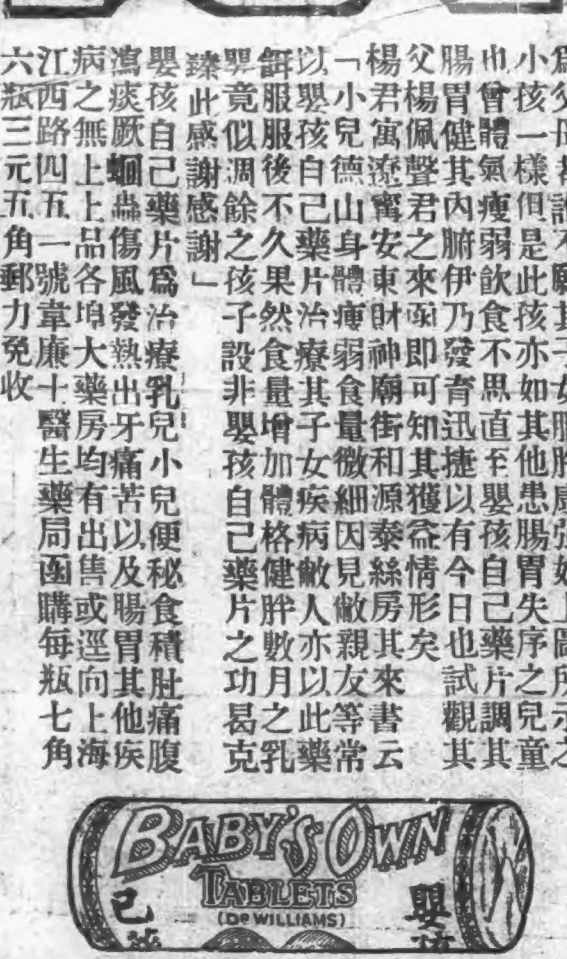 爲父母者誰不願其子女肥胖康強如上圖所示之
小孩一樣但是此孩亦如其他患腸胃失序之兒童
也曾體氣瘦弱飲食不思直至嬰孩自己藥片調其
腸胃健其內腑伊乃發育迅捷以有今日也試觀其
父楊佩聲君之來函即可知其獲益情形矣
楊君寓遼甯安東財神廟街和源泰絲房其來書云
「小兒德山身體瘦弱食量微細因見敝親友等常
以嬰孩自己藥片治療其子女疾病敝人亦以此藥
餌服服後不久果然食量增加體格健胖數月之乳
嬰竟似週餘之孩子設非嬰孩自己藥片之功曷克
臻此感謝感謝」
嬰孩自己藥片爲治療乳兒小兒便秘食積肚痛腹
瀉痰厥蛔蟲傷風發熱出牙痛苦以及腸胃其他疾
病之無上上品各埠大藥房均有出售或逕向上海
江西路四五一號韋廉士醫生藥局函購每瓶七角
六瓶三元五角郵力免收
BABY'S OWN
TABLETS
(DR WILLIAMS)
嬰孩
己藥